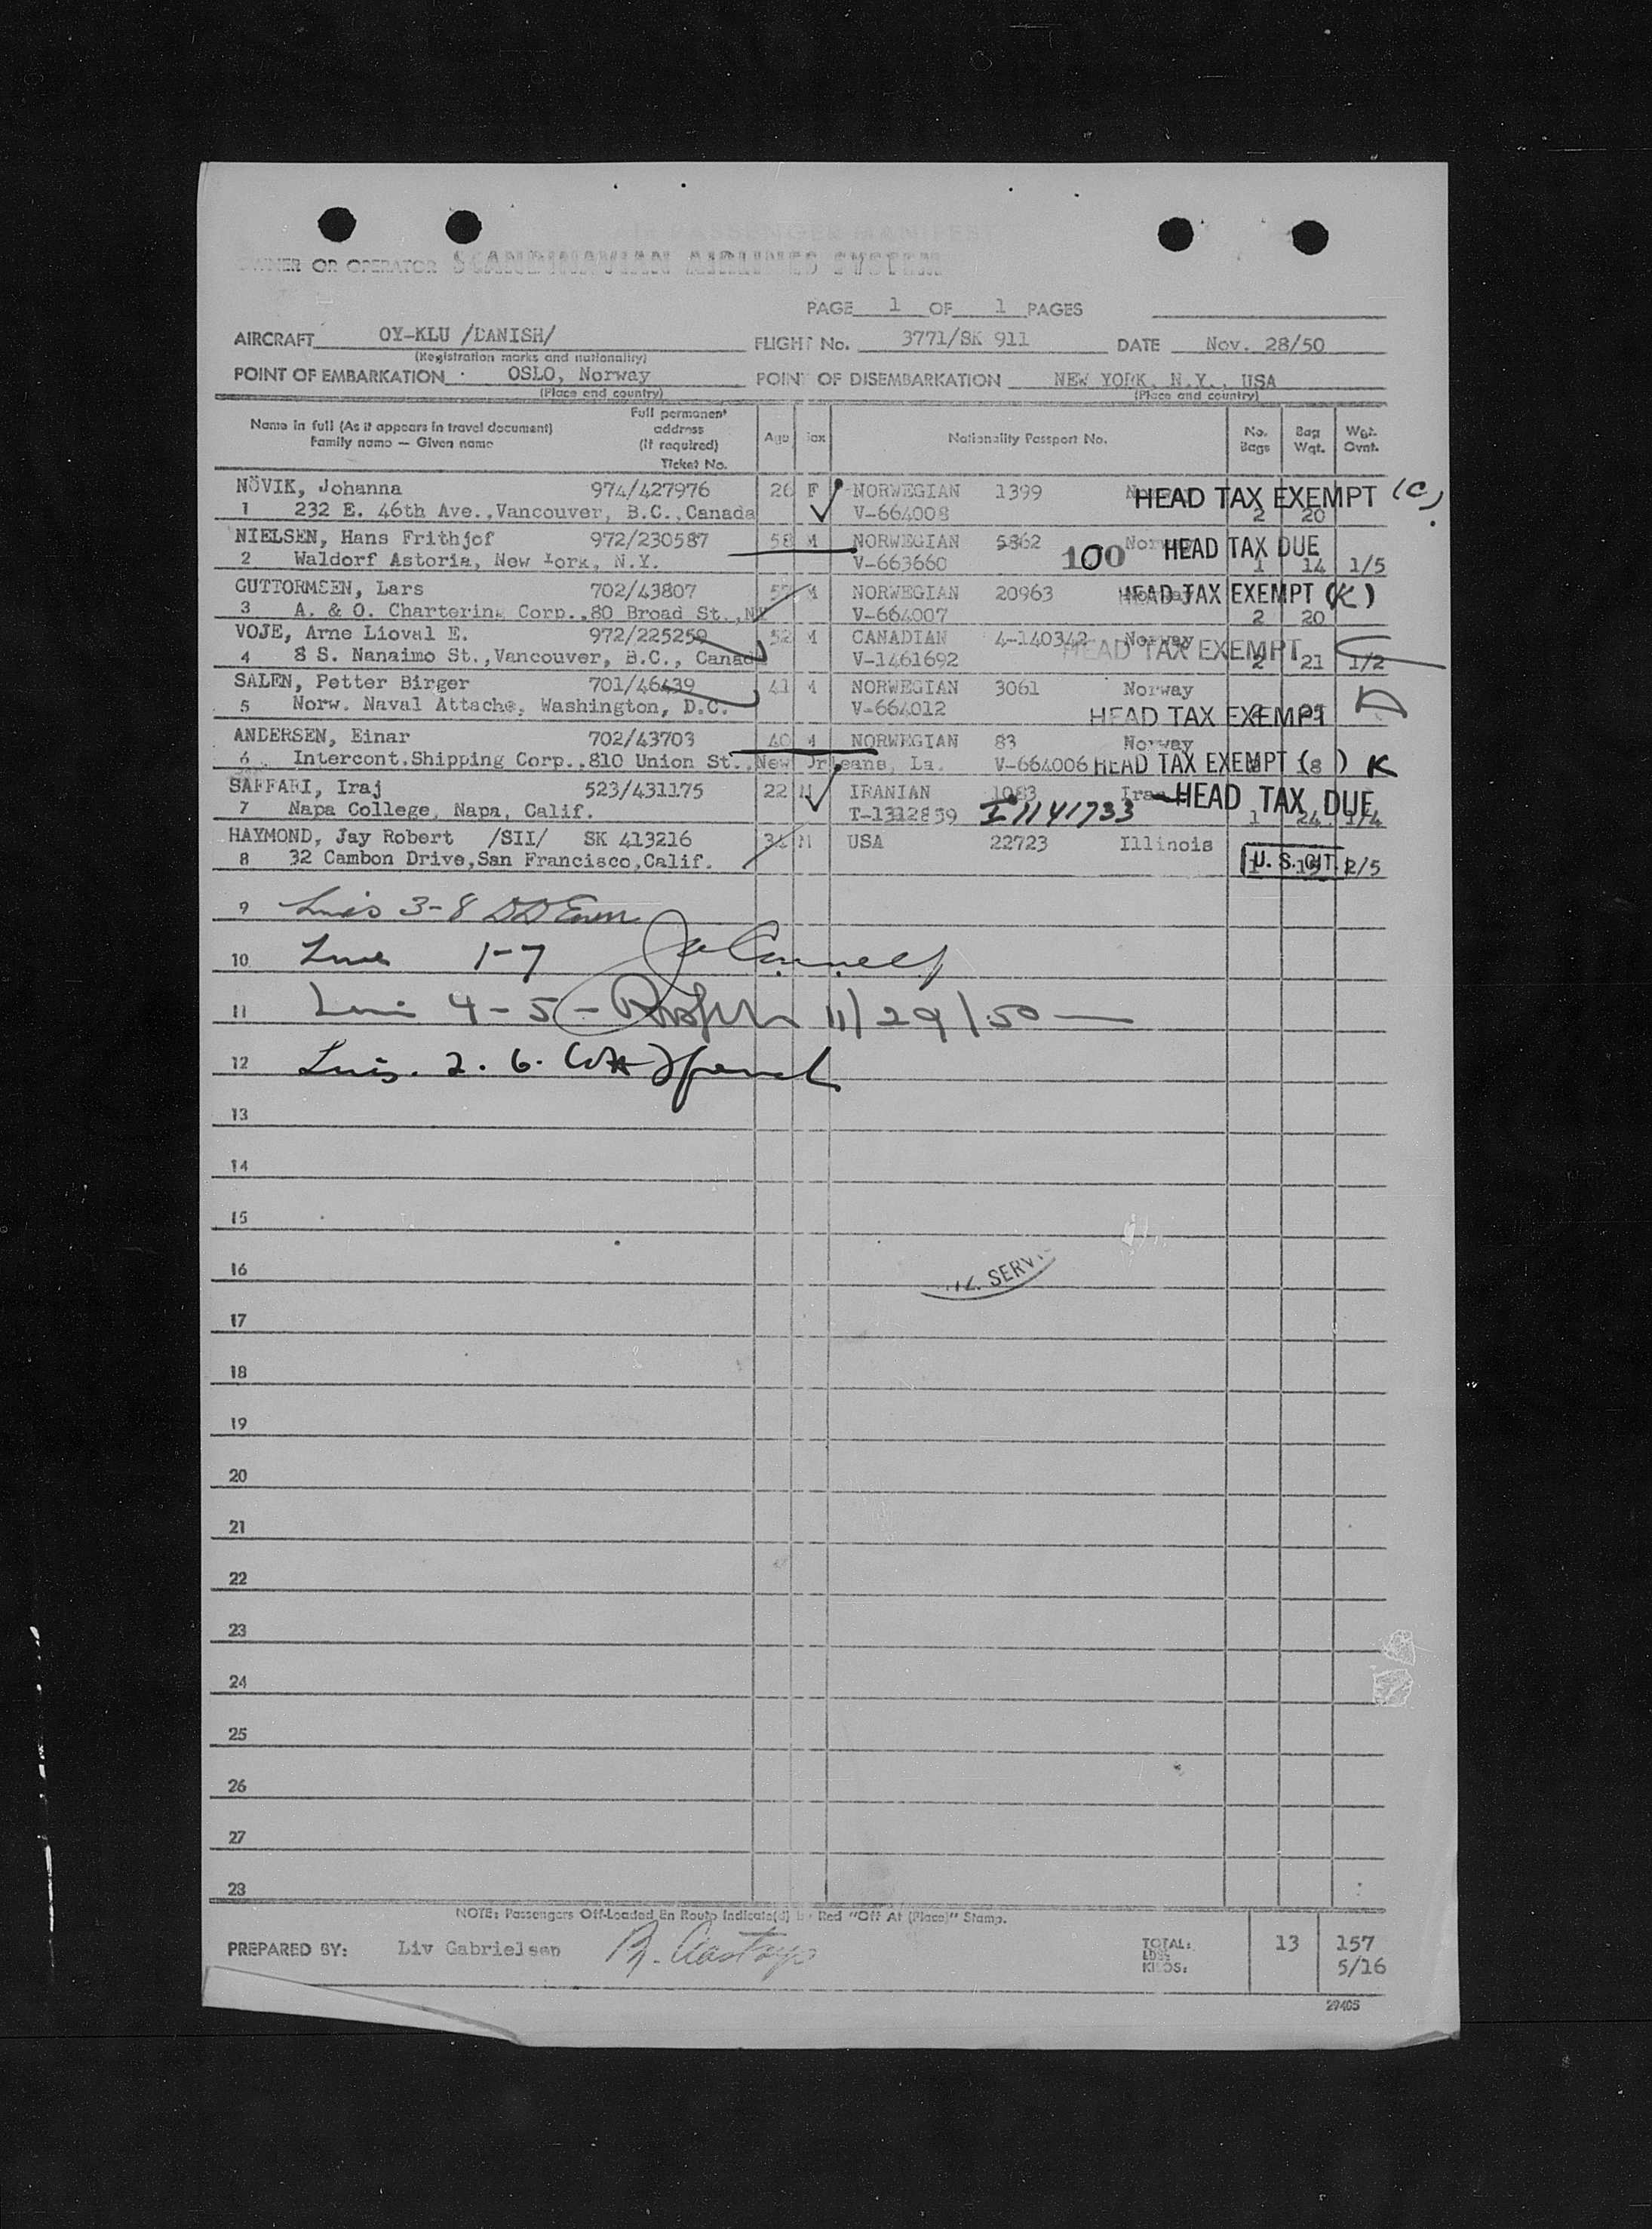 PASSENGER MANIFEST
OWNER OR OPERATOR SCANDINAVIAN AIRLINES SYSTEM
PAGE 1 OF 1 PAGES
AIRCRAFT OY-KLU /DANISH/ FLIGHT No. 3771/SK 911 DATE Nov. 28/50
(Registration marks and nationality)
POINT OF EMBARKATION OSLO, Norway POINT OF DISEMBARKATION NEW YORK, N.Y., USA
(Place and country) (Place and country)
Name in full (As it appears in travel document) Family name — Given name Full permanent address (if required) Ticket No. Age Sex Nationality Passport No. No. Bags Bag Wgt. Wgt. Ovnt.
NÖVIK, Johanna 974/427976 26 F NORWEGIAN 1399 HEAD TAX EXEMPT (C)
1 232 E. 46th Ave.,Vancouver, B.C.,Canada V-664008 2 20
NIELSEN, Hans Frithjof 972/230587 58 M NORWEGIAN 5862 100 Norway HEAD TAX DUE
2 Waldorf Astoria, New York, N.Y. V-663660 1 14 1/5
GUTTORMSEN, Lars 702/43807 M NORWEGIAN 20963 HEAD TAX EXEMPT (K)
3 A. & O. Chartering Corp.,80 Broad St.,NY V-664007 2 20
VOJE, Arne Lioval E. 972/225259 52 M CANADIAN 4-140342 Norway HEAD TAX EXEMPT
4 8 S. Nanaimo St.,Vancouver, B.C., Canada V-1461692 2 21 1/2
SALEN, Petter Birger 701/46439 41 M NORWEGIAN 3061 Norway
5 Norw. Naval Attache, Washington, D.C. V-664012 HEAD TAX EXEMPT
ANDERSEN, Einar 702/43703 40 M NORWEGIAN 83 Norway
6 Intercont.Shipping Corp.,810 Union St.,New Orleans, La. V-664006 HEAD TAX EXEMPT (8) K
SAFFARI, Iraj 523/431175 22 M IRANIAN 1083 Iran HEAD TAX DUE
7 Napa College, Napa, Calif. T-1312859 I1141733 1 24 1/4
HAYMOND, Jay Robert /SII/ SK 413216 M USA 22723 Illinois
8 32 Cambon Drive,San Francisco,Calif. U. S. CIT. 2/5
9 Lines 3-8
10 Line 1-7
11 4-5 11/29/50
12 Lines. 2. 6.
13
14
15
16
SERVI
17
18
19
20
21
22
23
24
25
26
27
28
NOTE: Passengers Off-Loaded En Route Indicate(d) by Red "Off At (Place)" Stamp.
PREPARED BY: Liv Gabrielsen TOTAL: 13 157
LBS:
KILOS: 5/16
29405